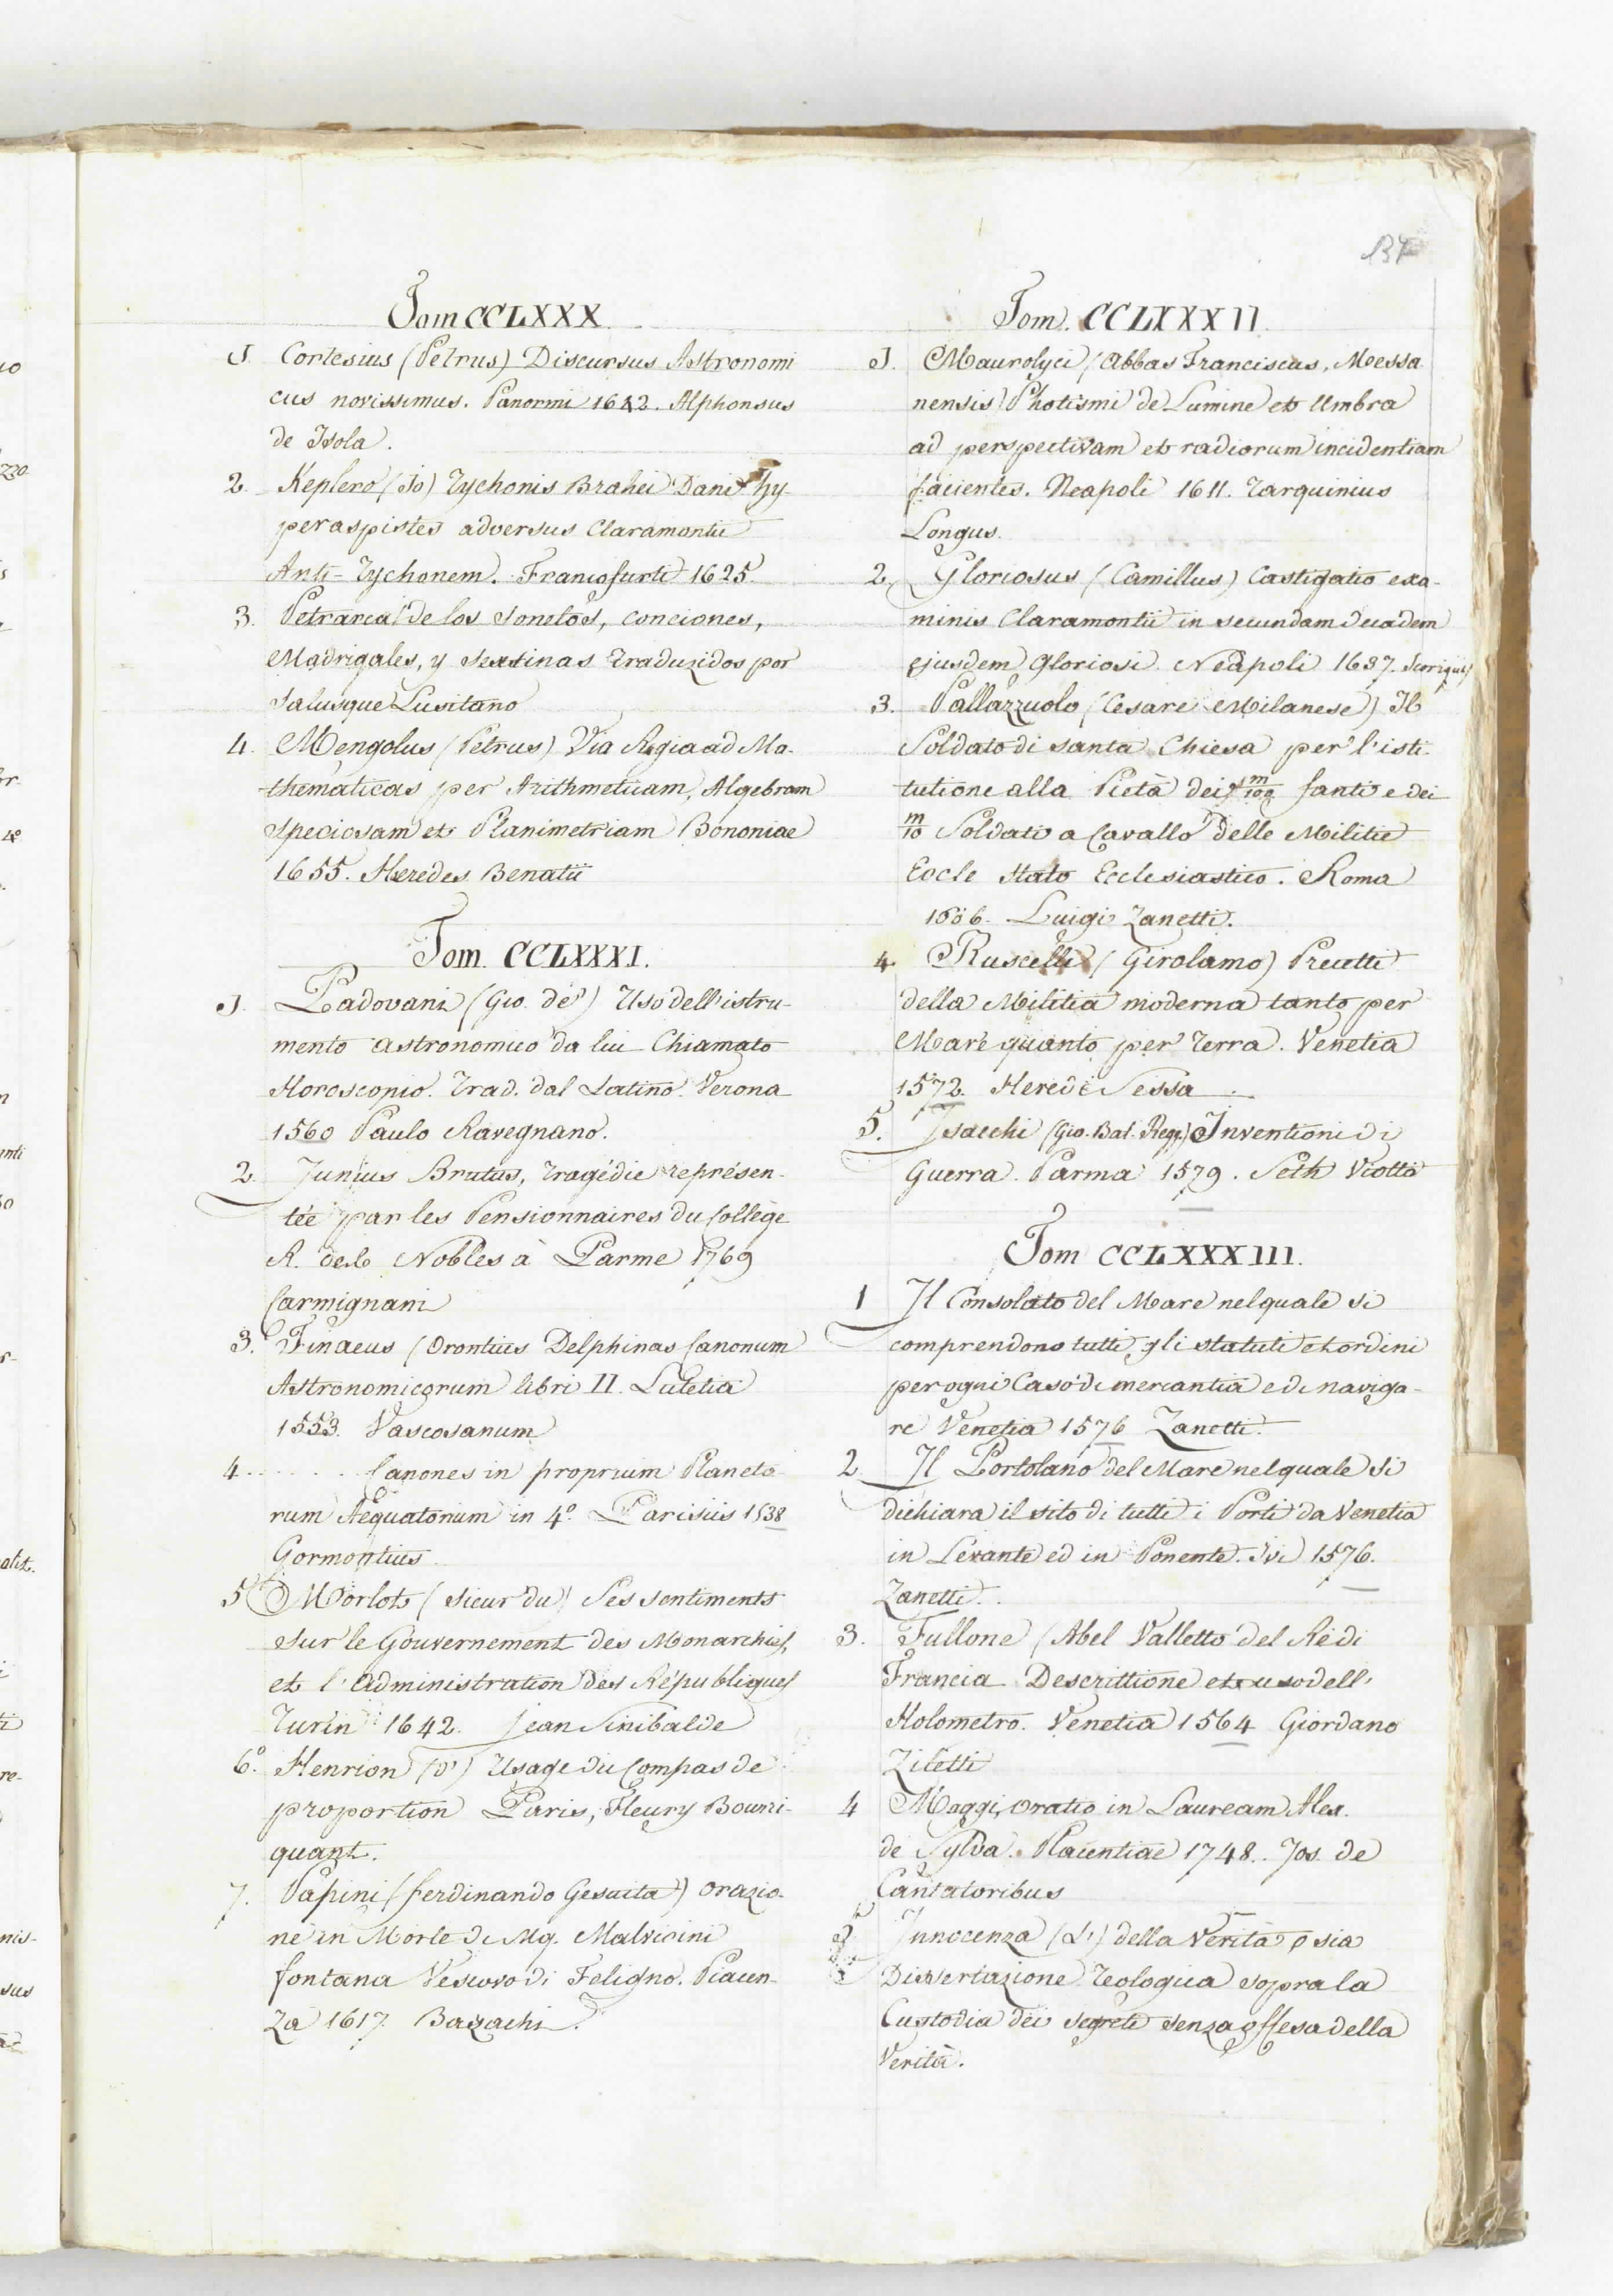 137
Tom CCLXXX.
1 Cortesius (Petrus) Discursus Astronomi
cus novissimus. Panormi 1642. Alphonsus
de Isola.
2. Keplero (Jo) Tychonis Brahei Dani Hy-
peraspistes adversus Claramontii
Anti-Tychonem. Francofurti 1625.
3. Petrarca de los Sonetos, conciones,
Madrigales, y Sextinas traduzidos por
Salusque Lusitano
4. Mengolus (Petrus) Via Regia ad Ma-
thematicas per Arithmeticam, Algebram
Speciosam et Planimetriam Bononiae
1655. Heredes Benatii
Tom. CCLXXXI.
1. Padovani (Gio. de') Uso dell'istru-
mento astronomico da lui Chiamato
Horoscopio. Trad. dal Latino. Verona
1560 Paulo Ravegnano.
2. Junius Brutus, Tragédie représen-
tée par les Pensionnaires du College
R. des Nobles à Parme 1769
Carmignani
3. Finaeus (Orontius Delphinas Canonum
Astronomicorum libri II. Lutetia
1553. Vascosanum
4. . . . . . Canones in proprium Planeto
rum Aequatorium in 4.º Parisiis 1538
Gormontius
5 Morlot (Sieur du) Ses sentiments
sur le Gouvernement des Monarchies,
et l'administration des Républiques
Turin 1642. Jean Sinibalde
6.º Henrion (D') Usage du Compas de
proportion Paris, Fleury Bourri-
quant.
7. Papini (ferdinando Gesuita) Orazio-
ne in Morte di Mg. Malvicini
fontana Vescovo di Foligno. Piacen-
za 1617. Bazachi.
Tom. CCLXXXII.
1. Maurolyci (Abbas Franciscus, Messa
nensis) Photismi de Lumine et Umbra
ad perspectivam et radiorum incidentiam
facientes. Neapoli 1611. Tarquinius
Longus.
2. Gloriosus (Camillus) Castigatio exa-
minis Claramontii in secundam decadem
ejusdem Gloriosi. Neapoli 1637.
3. Pallazzuolo (Cesare Milanese) Il
Soldato di santa Chiesa per l'isti-
tutione alla Pietà dei m/100 fanti e dei
m/10 Soldati a Cavallo delle Militie
Eccle Stato Ecclesiastico. Roma
1606. Luigi Zanetti.
4. Ruscelli (Girolamo) Precetti
della Militia moderna tanto per
Mare quanto per Terra. Venetia
1572. Heredi Sessa
5. Isacchi (Gio. Bat. Regg.) Inventioni di
Guerra. Parma 1579. Seth Viotto
Tom CCLXXXIII.
1 Il Consolato del Mare nel quale si
comprendono tutti gli statuti et ordini
per ogni Caso di mercantia e di naviga-
re Venetia 1576 Zanetti.
2 Il Portolano del Mare nel quale si
dichiara il sito di tutti i Porti da Venetia
in Levante ed in Ponente. Ivi 1576.
Zanetti.
3. Fullone (Abel Valletto del Re di
Francia Descrittione et uso dell'
Holometro. Venetia 1564 Giordano
Ziletti
4 Maggi, Oratio in Lauream Alex.
de Sylva. Placentiae 1748. Jos. de
Cantatoribus
5 Innocenza (L') della Verità o sia
Dissertazione Teologica sopra la
Custodia dei segreti senza offesa della
Verità.